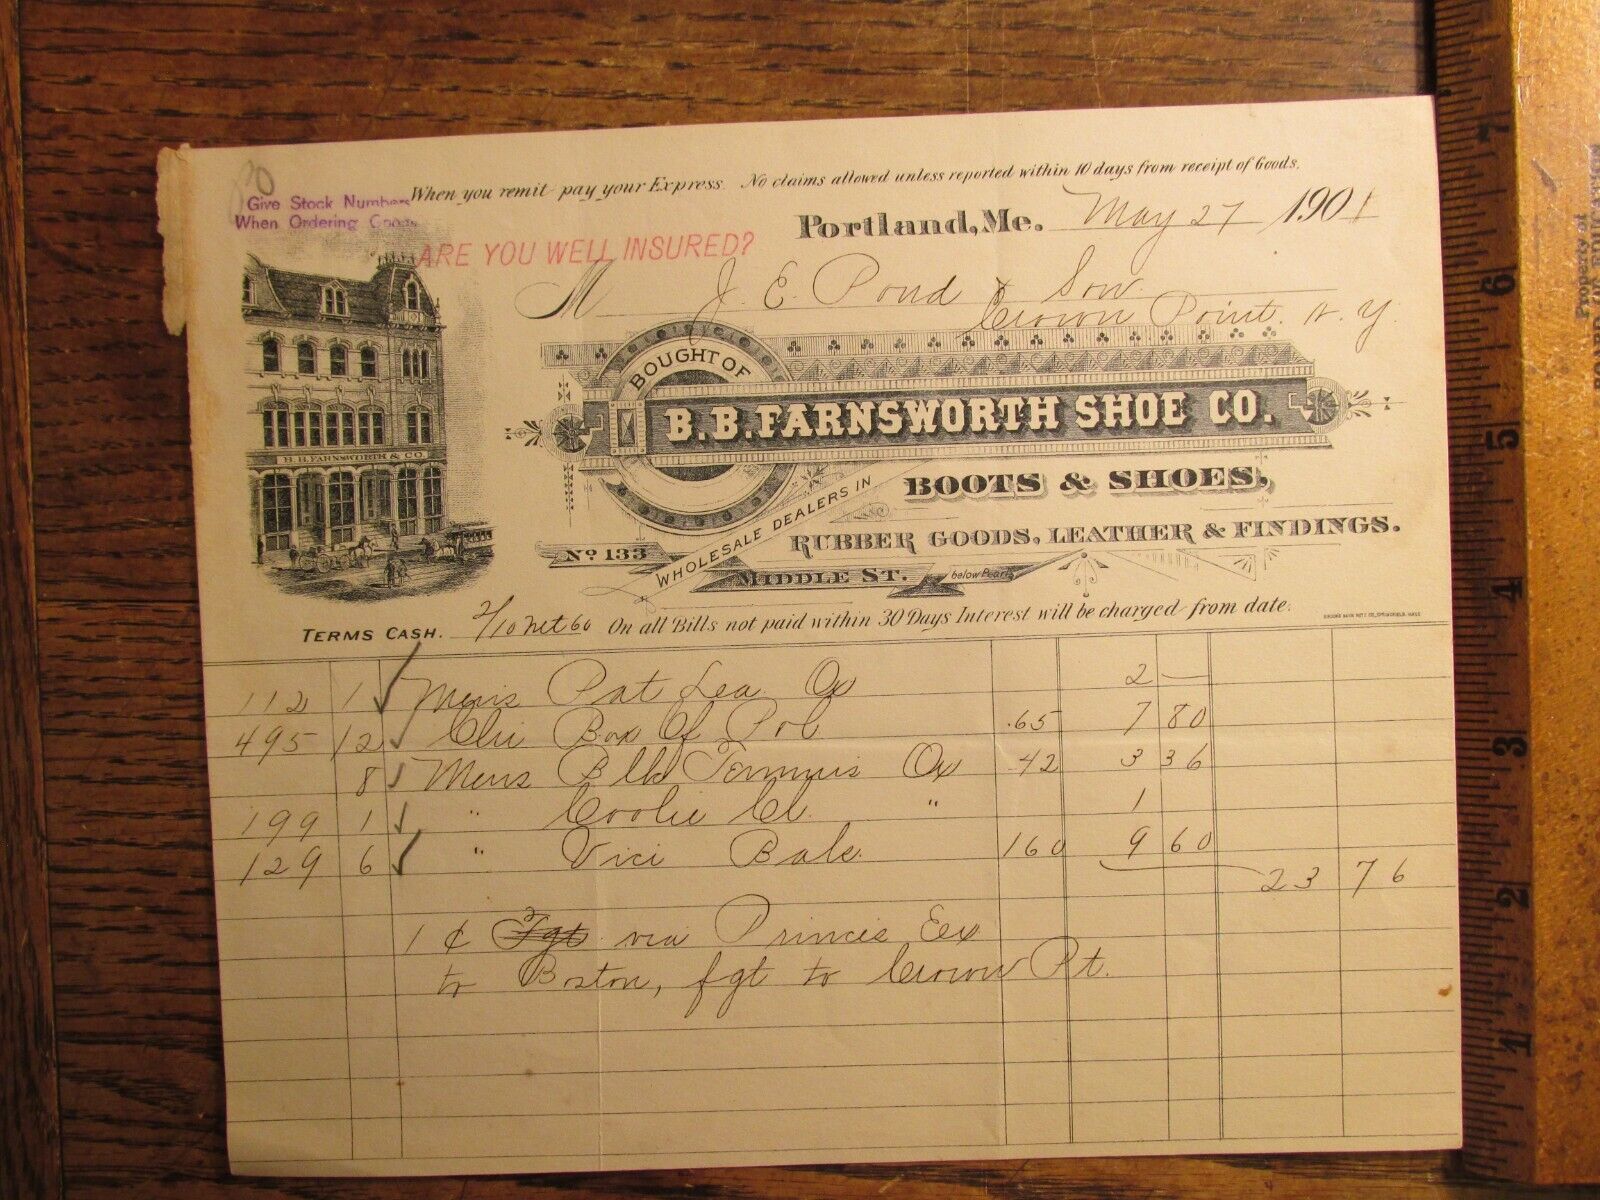 When you remit pay your Express. No claims allowed unless reported within 10 days from receipt of Goods.
Give Stock Numbers
When Ordering Goods
Portland, Me. May 27 1901
ARE YOU WELL INSURED?
M J. E. Pond & Son
Crown Point. N. Y.
BOUGHT OF
B.B. FARNSWORTH SHOE CO.
B.B. FARNSWORTH & CO.
WHOLESALE DEALERS IN
BOOTS & SHOES,
RUBBER GOODS, LEATHER & FINDINGS.
No 133
MIDDLE ST. below Pearl
TERMS CASH. 2/10 net 60 On all Bills not paid within 30 Days Interest will be charged from date.
112 1 Mens Pat Lea Ox 2 —
495 12 Chi Box Cf Pol .65 7 80
8 Mens Blk Tennis Ox 42 3 36
199 1 " Coolie Cl. " 1
129 6 " Vici Bals. 160 9 60
23 76
1 ¢ Fgt via Princes Eex
to Boston, fgt to Crown Pt.
7
6
5
4
3
2
1
Property of
BOARD OF EDUCATION